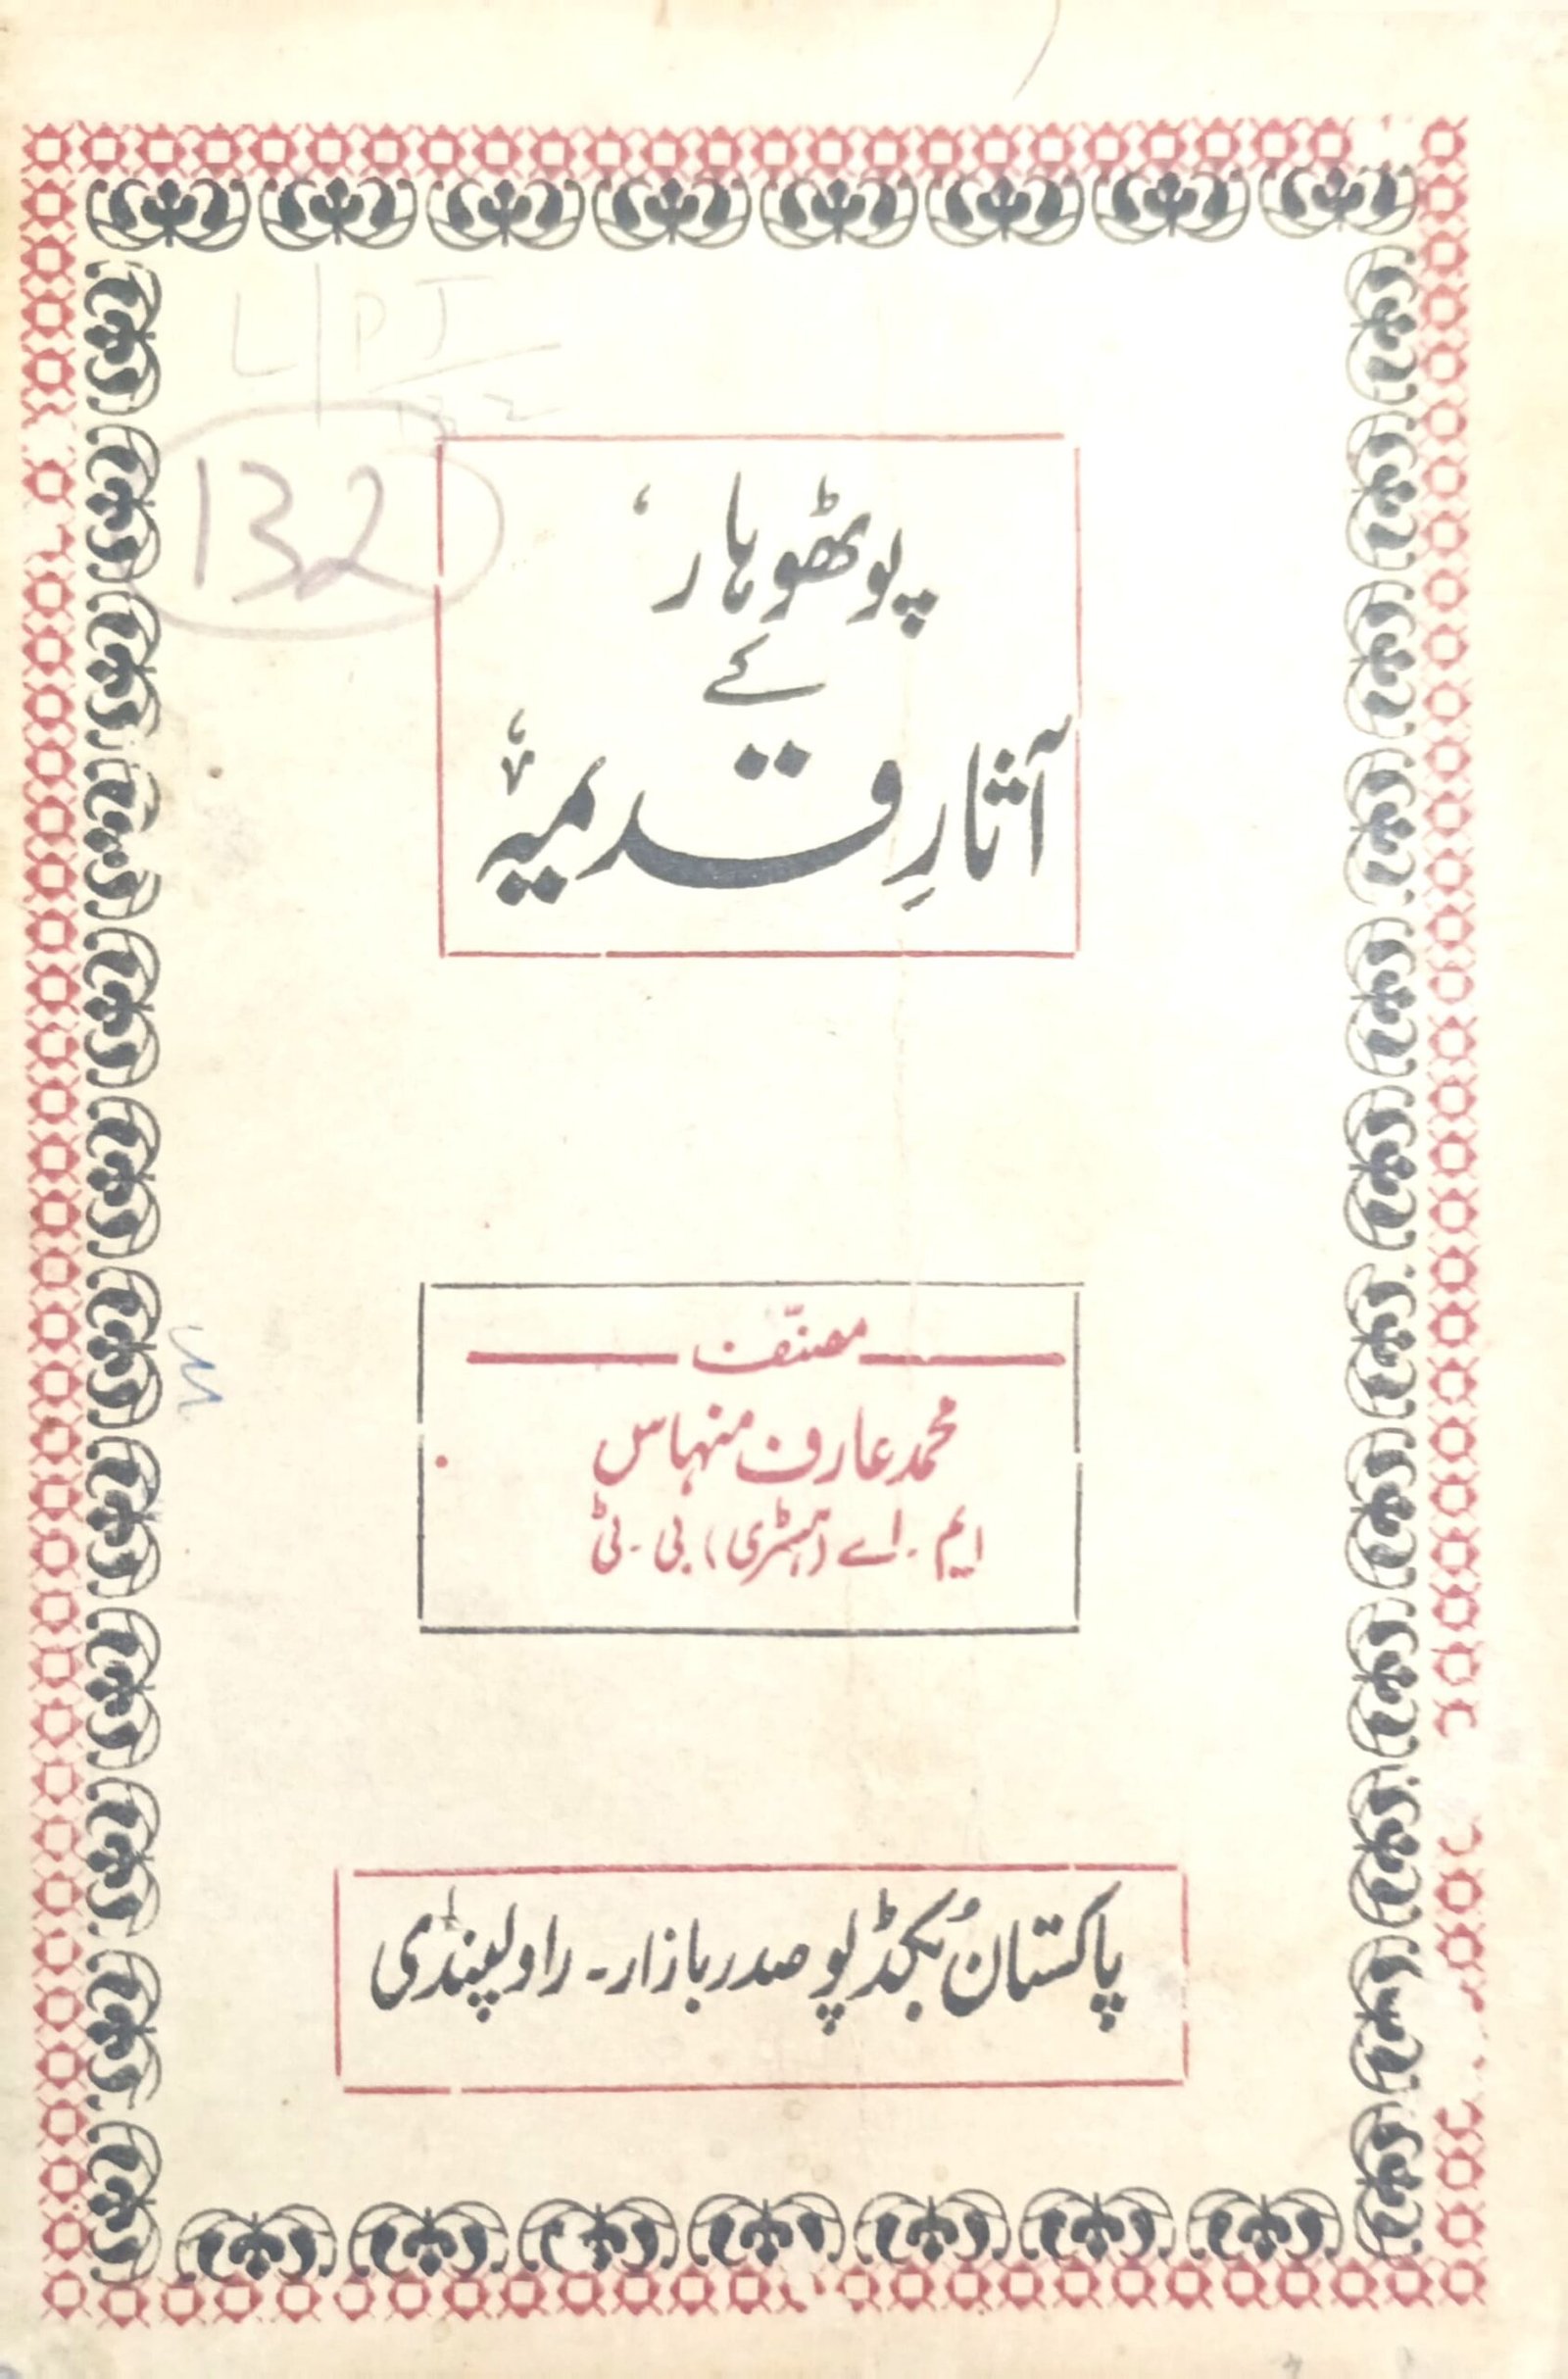 L | PJ
132
132
پوٹھوہار
کے
آثارِ قدیمہ
مصنّف
محمد عارف منہاس
ایم۔اے (ہسٹری) بی۔ٹی
پاکستان بُکڈپو صدر بازار۔ راولپنڈی